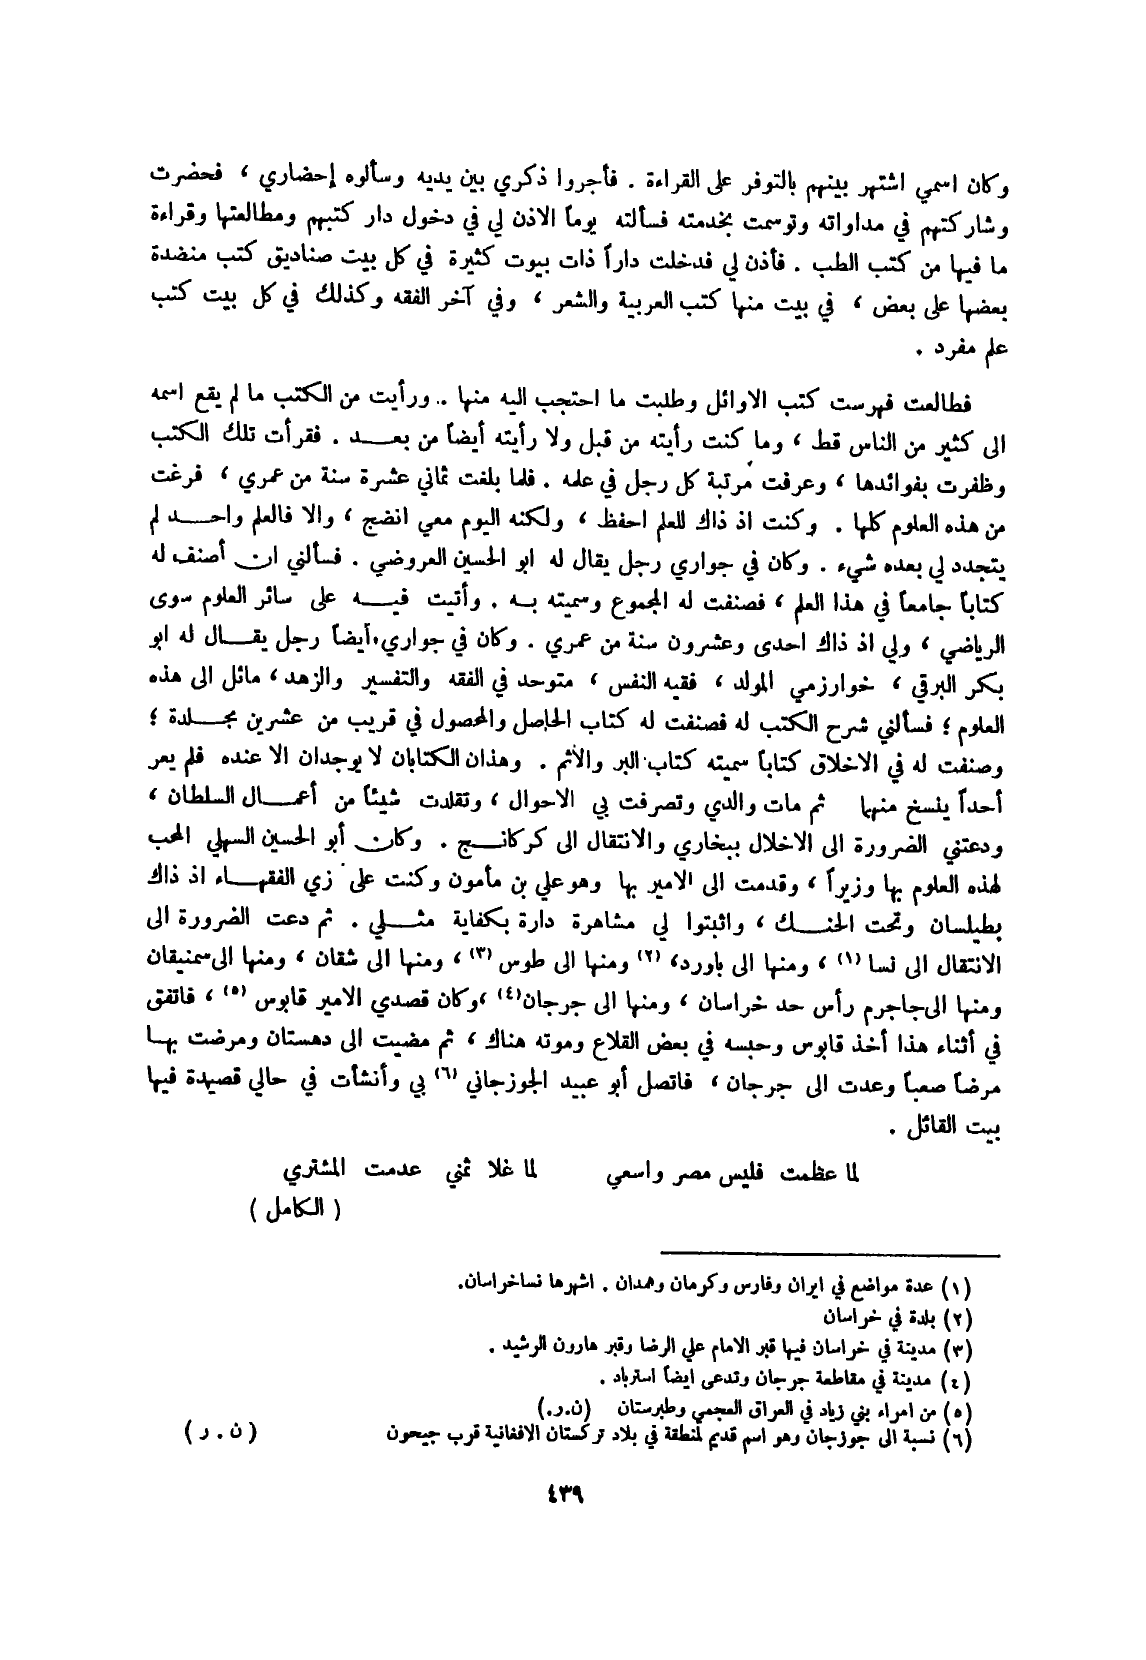 وكان اسمي اشتهر بينهم بالتوفر على القراءة . فأجروا ذكري بين يديه وسألوه إحضاري ، فحضرت
وشاركتهم في مداواته وتوسمت بخدمته فسألته يوماً الاذن لي في دخول دار كتبهم ومطالعتها وقراءة
ما فيها من كتب الطب . فأذن لي فدخلت داراً ذات بيوت كثيرة في كل بيت صناديق كتب منضدة
بعضها على بعض ، في بيت منها كتب العربية والشعر ، وفي آخر الفقه وكذلك في كل بيت كتب
علم مفرد .
فطالعت فهرست كتب الاوائل وطلبت ما احتجب اليه منها .. ورأيت من الكتب ما لم يقع اسمه
الى كثير من الناس قط ، وما كنت رأيته من قبل ولا رأيته أيضاً من بعـــد . فقرأت تلك الكتب
وظفرت بفوائدها ، وعرفت مرتبة كل رجل في علمه . فلما بلغت ثماني عشرة سنة من عمري ، فرغت
من هذه العلوم كلها . وكنت اذ ذاك للعلم احفظ ، ولكنه اليوم معي انضج ، والا فالعلم واحـــد لم
يتجدد لي بعده شيء . وكان في جواري رجل يقال له ابو الحسين العروضي . فسألني ان أصنف له
كتاباً جامعاً في هذا العلم ، فصنفت له المجموع وسميته بـه . وأتيت فيـــه على سائر العلوم سوى
الرياضي ، ولي اذ ذاك احدى وعشرون سنة من عمري . وكان في جواري أيضاً رجل يقـــال له ابو
بكر البرقي ، خوارزمي المولد ، فقيه النفس ، متوحد في الفقه والتفسير والزهد ، مائل الى هذه
العلوم ؛ فسألني شرح الكتب له فصنفت له كتاب الحاصل والمحصول في قريب من عشرين مجـــلدة ؛
وصنفت له في الاخلاق كتاباً سميته كتاب البر والأثم . وهذان الكتابان لا يوجدان الا عنده فلم يعر
أحداً ينسخ منهما ثم مات والدي وتصرفت بي الاحوال ، وتقلدت شيئاً من أعمـــال السلطان ،
ودعتني الضرورة الى الاخلال ببخاري والانتقال الى كركانـــج . وكان أبو الحسين السهلي المحب
لهذه العلوم بها وزيراً ، وقدمت الى الامير بها وهو علي بن مأمون وكنت على زي الفقهـــاء اذ ذاك
بطيلسان وتحت الحنـــك ، واثبتوا لي مشاهرة دارة بكفاية مثـــلي . ثم دعت الضرورة الى
الانتقال الى نسا (١) ، ومنها الى باورد، (٢) ومنها الى طوس (٣) ، ومنها الى شقان ، ومنها الى سمنيقان
ومنها الى جاجرم رأس حد خراسان ، ومنها الى جرجان(٤) ،وكان قصدي الامير قابوس (٥) ، فاتفق
في أثناء هذا أخذ قابوس وحبسه في بعض القلاع وموته هناك ، ثم مضيت الى دهستان ومرضت بهـا
مرضاً صعباً وعدت الى جرجان ، فاتصل أبو عبيد الجوزجاني (٦) بي وأنشأت في حالي قصيدة فيها
بيت القائل .
لما عظمت فليس مصر واسعي لما غلا ثمني عدمت المشتري
( الكامل )
(١) عدة مواضع في ايران وفارس وكرمان وهمدان . اشهرها نساخراسان.
(٢) بلدة في خراسان
(٣) مدينة في خراسان فيها قبر الامام علي الرضا وقبر هارون الرشيد .
(٤) مدينة في مقاطعة جرجان وتدعى ايضاً استرباد .
(٥) من امراء بني زياد في العراق العجمي وطبرستان (ن.ر.)
(٦) نسبة الى جوزجان وهو اسم قديم لمنطقة في بلاد تركستان الافغانية قرب جيحون ( ن . ر )
٤٣٩